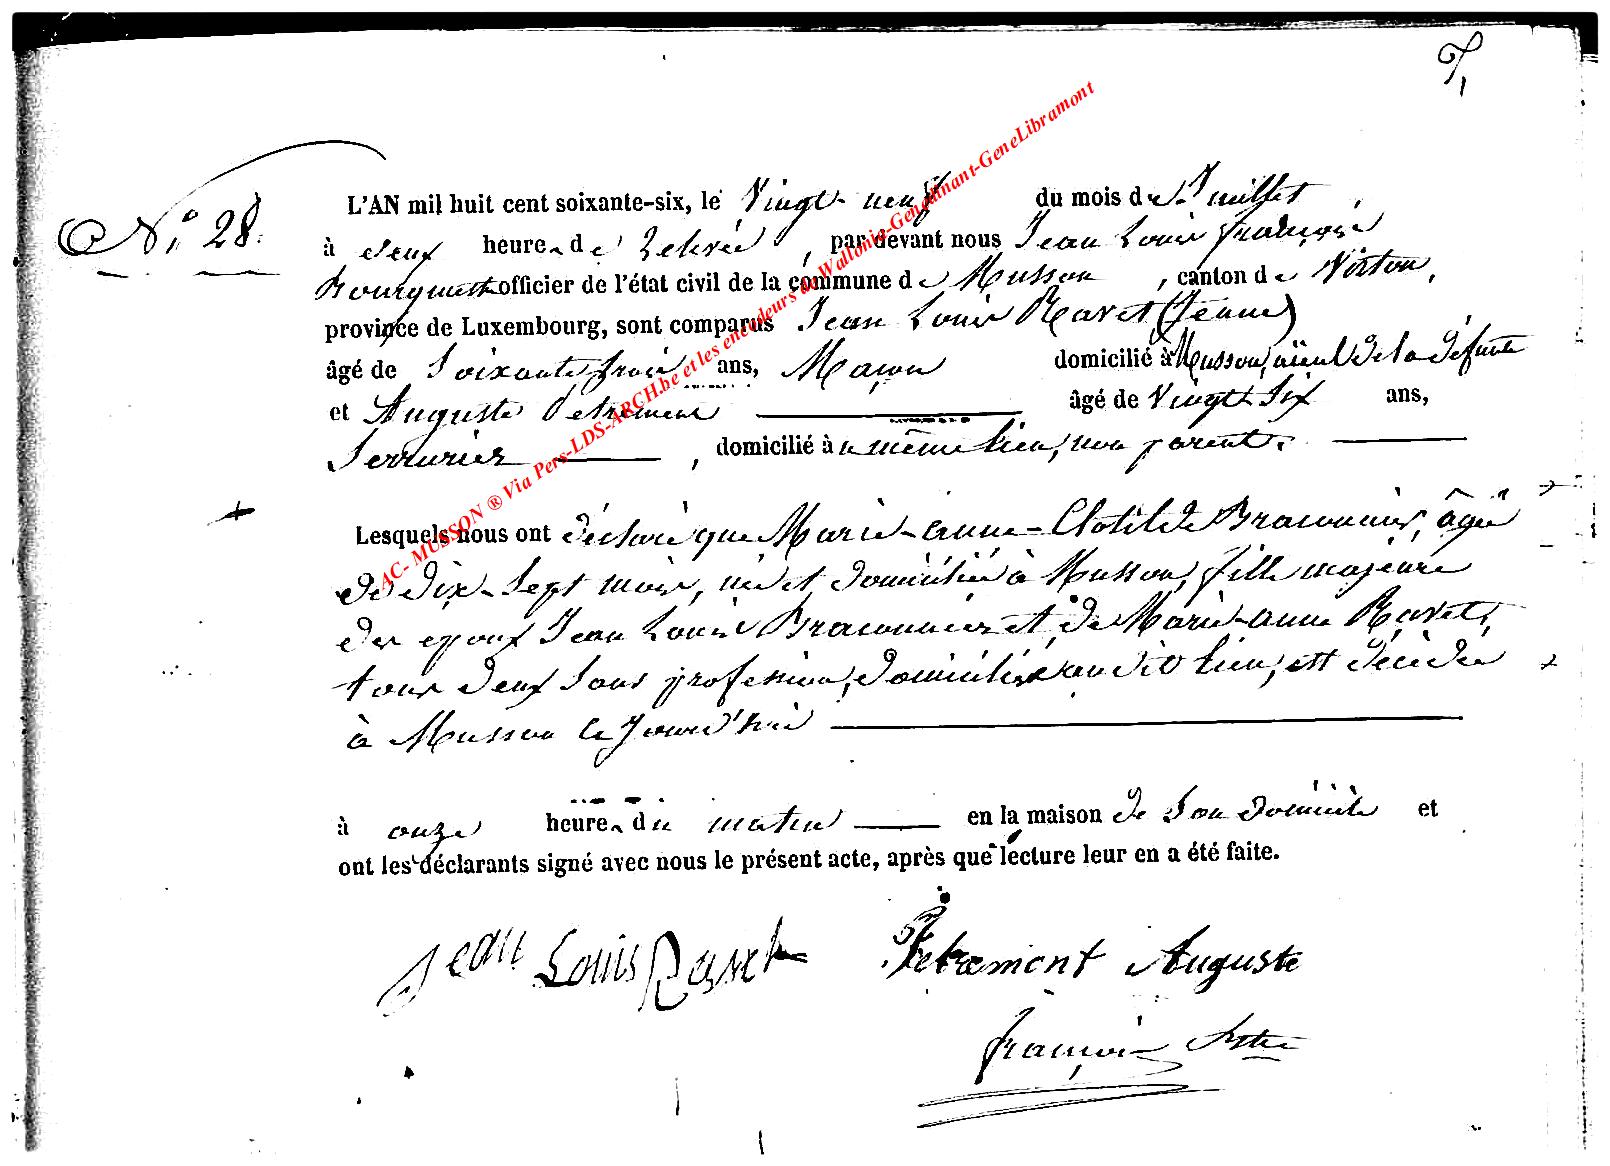 N° 28.
L'AN mil huit cent soixante-six, le Vingt-neuf du mois de Juillet
à deux heures de relevée, par devant nous Jean Louis François
officier de l'état civil de la commune de Musson, canton de Virton,
province de Luxembourg, sont comparus Jean Louis Ravet (Jeune)
âgé de soixante trois ans, Maçon domicilié à Musson, aïeul de la défunte
et Auguste Petrement âgé de vingt six ans,
Serrurier, domicilié au même lieu, non parent.
Lesquels nous ont déclaré que Marie-anne-Clotilde Braconnier, âgée
de dix-sept mois, née et domiciliée à Musson, fille majeure
des époux Jean Louis Braconnier et de Marie-anne Ravet,
tous deux sans profession, domiciliés au dit lieu, est décédée
à Musson ce jourd'hui
à onze heures du matin en la maison de son domicile et
ont les déclarants signé avec nous le présent acte, après que lecture leur en a été faite.
Jean Louis Ravet Petrement Auguste
François
AC- MUSSON ® Via Pers-LDS-ARCH.be et les encodeurs de Wallonia-Genedinant-GeneLibramont